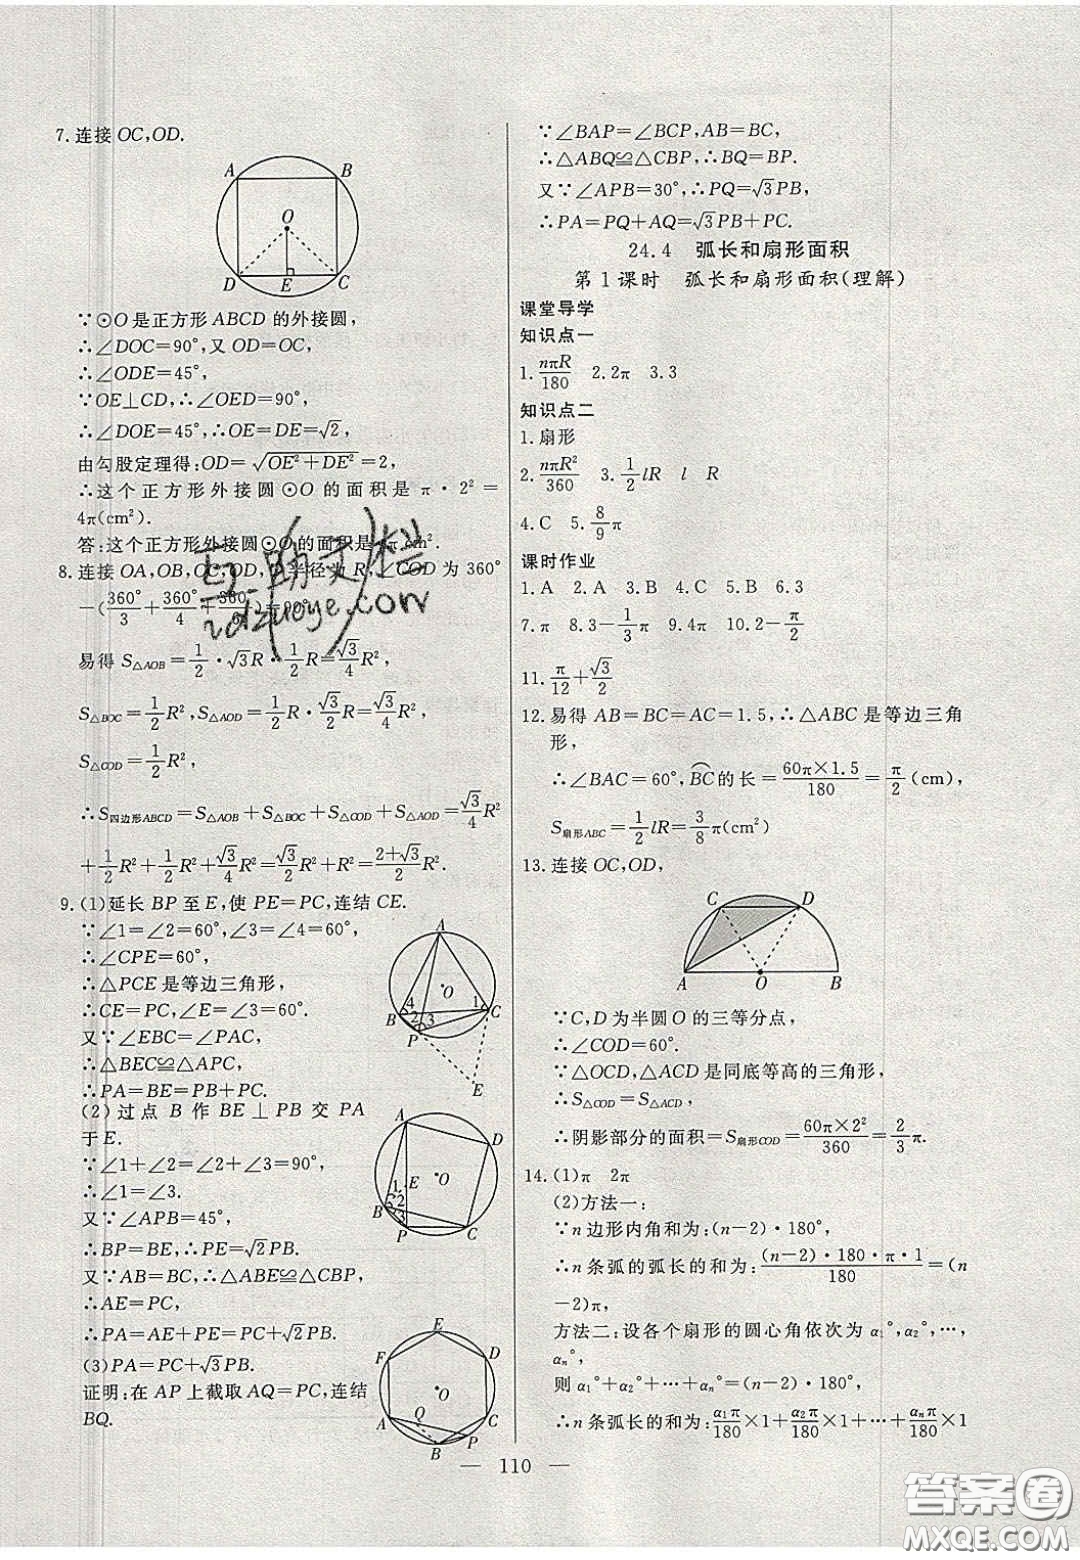 7.连接OC,OD.
A B O D E C
∵⊙O是正方形ABCD的外接圆,
∴∠DOC=90°,又OD=OC,
∴∠ODE=45°,
∵OE⊥CD,∴∠OED=90°,
∴∠DOE=45°,∴OE=DE=√2,
由勾股定理得:OD=√(OE²+DE²)=2,
∴这个正方形外接圆⊙O的面积是π·2²=
4π(cm²).
答:这个正方形外接圆⊙O的面积是 cm².
8.连接OA,OB,OC,OD, 半径为R,∠COD为360°
-(360°/3+360°/4+360°/ )=90°
易得S△AOB=1/2·√3R·1/2R=√3/4R²,
S△BOC=1/2R²,S△AOD=1/2R·√3/2R=√3/4R²,
S△COD=1/2R²,
∴S四边形ABCD=S△AOB+S△BOC+S△COD+S△AOD=√3/4R²
+1/2R²+1/2R²+√3/4R²=√3/2R²+R²=(2+√3)/2R².
9.(1)延长BP至E,使PE=PC,连结CE.
∵∠1=∠2=60°,∠3=∠4=60°,
∴∠CPE=60°,
∴△PCE是等边三角形,
∴CE=PC,∠E=∠3=60°,
又∵∠EBC=∠PAC,
∴△BEC≌△APC,
∴PA=BE=PB+PC.
A O B 4 2 3 1 C P E
(2)过点B作BE⊥PB交PA
于E.
∵∠1+∠2=∠2+∠3=90°,
∴∠1=∠3.
又∵∠APB=45°,
∴BP=BE,∴PE=√2PB.
又∵AB=BC,∴△ABE≌△CBP,
∴AE=PC,
∴PA=AE+PE=PC+√2PB.
A D O 1 E 2 B 3 P C
(3)PA=PC+√3PB.
证明:在AP上截取AQ=PC,连结
BQ.
E F D O A Q C P B
∵∠BAP=∠BCP,AB=BC,
∴△ABQ≌△CBP,∴BQ=BP.
又∵∠APB=30°,∴PQ=√3PB,
∴PA=PQ+AQ=√3PB+PC.
24.4 弧长和扇形面积
第1课时 弧长和扇形面积(理解)
课堂导学
知识点一
1.nπR/180 2.2π 3.3
知识点二
1.扇形
2.nπR²/360 3.1/2lR l R
4.C 5.8/9π
课时作业
1.A 2.A 3.B 4.C 5.B 6.3
7.π 8.3-1/3π 9.4π 10.2-π/2
11.π/12+√3/2
12.易得AB=BC=AC=1.5,∴△ABC是等边三角
形,
∴∠BAC=60°,BC的长=60π×1.5/180=π/2(cm),
S扇形ABC=1/2lR=3/8π(cm²)
13.连接OC,OD,
C D A O B
∵C,D为半圆O的三等分点,
∴∠COD=60°.
∵△OCD,△ACD是同底等高的三角形,
∴S△COD=S△ACD,
∴阴影部分的面积=S扇形COD=60π×2²/360=2/3π.
14.(1)π 2π
(2)方法一:
∵n边形内角和为:(n-2)·180°,
∴n条弧的弧长的和为:(n-2)·180·π·1/180=(n
-2)π,
方法二:设各个扇形的圆心角依次为α₁°,α₂°,…,
αn°,
则α₁°+α₂°+…+αn°=(n-2)·180°,
∴n条弧长的和为:α₁π/180×1+α₂π/180×1+…+αnπ/180×1
— 110 —
互助文档
idzuoye.com
答案圈
MXQE.COM